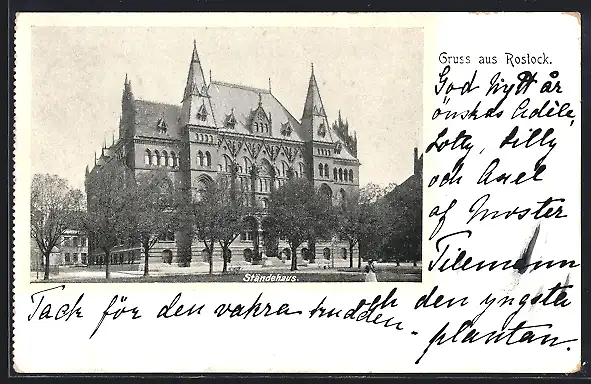 Gruss aus Rostock.
God Nytt år
önskas Adèle,
Lotty, Lilly
och Axel
af Moster
Tilemann
Ständehaus.
Tack för den vakra trudden-
och den yngsta
plantan.